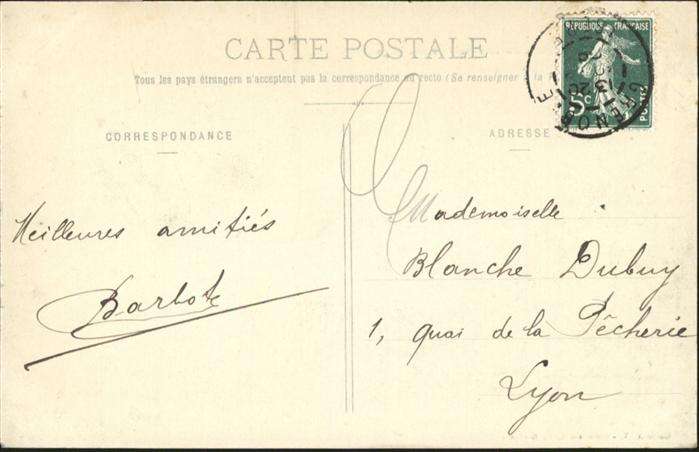 CARTE POSTALE
Tous les pays étrangers n'acceptent pas la correspondance au recto (Se renseigner à la
CORRESPONDANCE
ADRESSE
RÉPUBLIQUE FRANÇAISE
5c
POSTES
Meilleures amitiés
Barbote
Mademoiselle
Blanche Dubuy
1, quai de la Pêcherie
Lyon